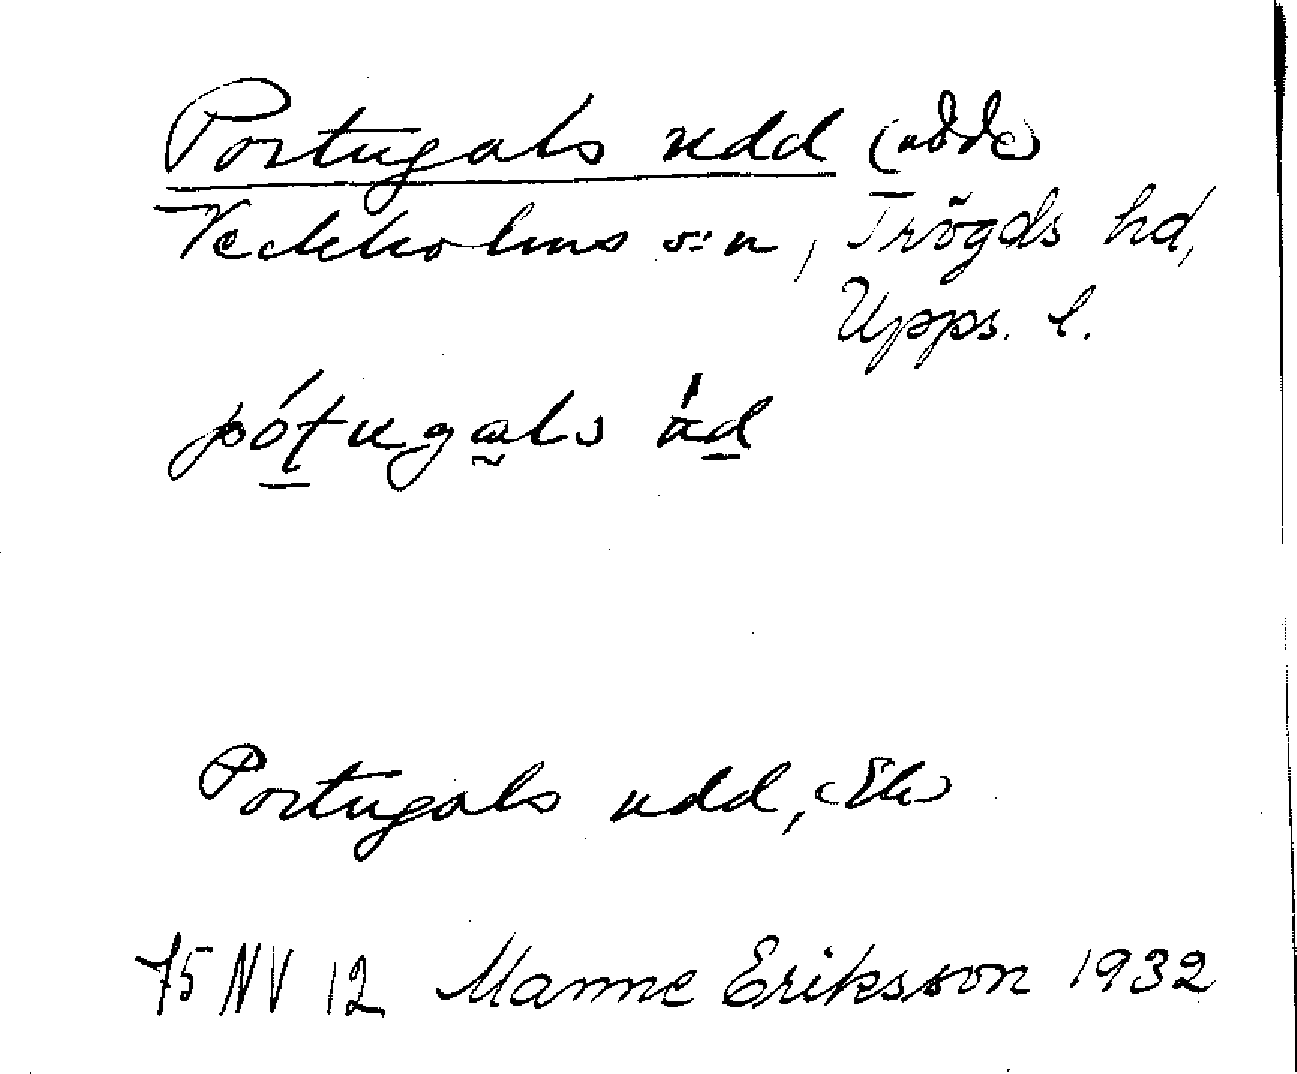 Portugals udd (udde)
Veckholms s:n, Trögds hd,
Upps. l.
pótugals úd
Portugals udd, (Ek)
75 NV 12 Manne Eriksson 1932